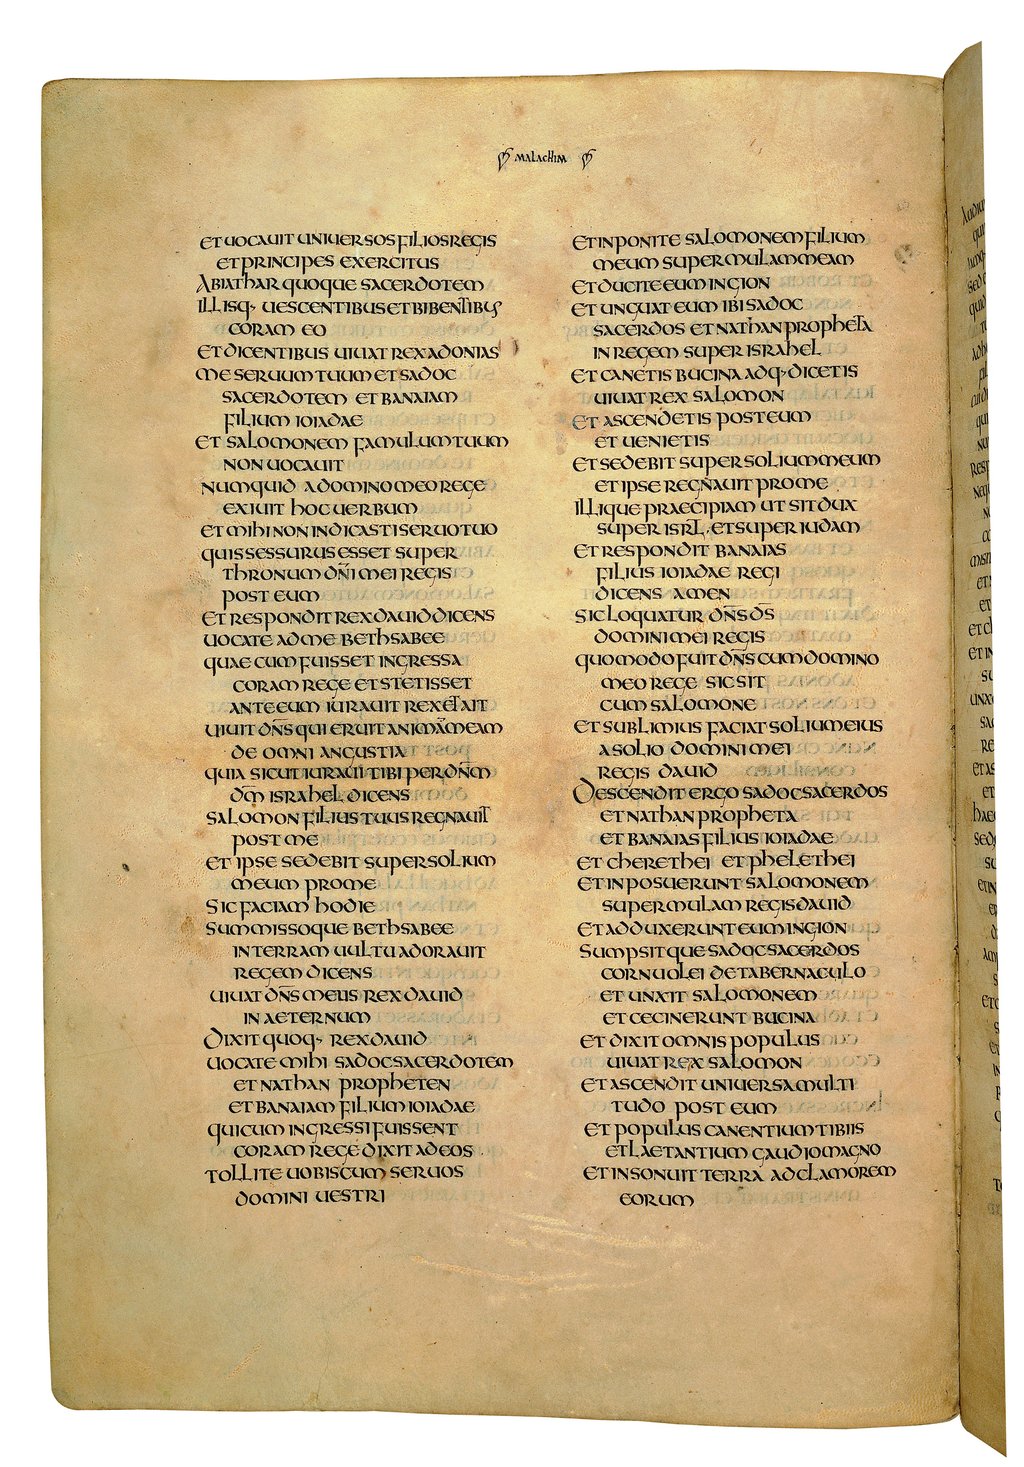 MALACHIM
ET UOCAUIT UNIUERSOS FILIOS REGIS
ET PRINCIPES EXERCITUS
ABIATHAR QUOQUE SACERDOTEM
ILLISQ· UESCENTIBUS ET BIBENTIBUS
CORAM EO
ET DICENTIBUS UIUAT REX ADONIAS
ME SERUUM TUUM ET SADOC
SACERDOTEM ET BANAIAM
FILIUM IOIADAE
ET SALOMONEM FAMULUM TUUM
NON UOCAUIT
NUMQUID A DOMINO MEO REGE
EXIUIT HOC UERBUM
ET MIHI NON INDICASTI SERUO TUO
QUIS SESSURUS ESSET SUPER
THRONUM DN̄I MEI REGIS
POST EUM
ET RESPONDIT REX DAUID DICENS
UOCATE AD ME BETHSABEE
QUAE CUM FUISSET INGRESSA
CORAM REGE ET STETISSET
ANTE EUM IURAUIT REX ET AIT
UIUIT DN̄S QUI ERUIT ANIMĀ MEAM
DE OMNI ANGUSTIA
QUIA SICUT IURAUI TIBI PER DN̄M
DM̄ ISRAHEL DICENS
SALOMON FILIUS TUUS REGNAUIT
POST ME
ET IPSE SEDEBIT SUPER SOLIUM
MEUM PRO ME
SIC FACIAM HODIE
SUMMISSOQUE BETHSABEE
IN TERRAM UULTU ADORAUIT
REGEM DICENS
UIUAT DN̄S MEUS REX DAUID
IN AETERNUM
DIXIT QUOQ· REX DAUID
UOCATE MIHI SADOC SACERDOTEM
ET NATHAN PROPHETEN
ET BANAIAM FILIUM IOIADAE
QUI CUM INGRESSI FUISSENT
CORAM REGE DIXIT AD EOS
TOLLITE UOBISCUM SERUOS
DOMINI UESTRI
ET INPONITE SALOMONEM FILIUM
MEUM SUPER MULAM MEAM
ET DUCITE EUM IN GION
ET UNGUAT EUM IBI SADOC
SACERDOS ET NATHAN PROPHETA
IN REGEM SUPER ISRAHEL
ET CANETIS BUCINA ADQ· DICETIS
UIUAT REX SALOMON
ET ASCENDETIS POST EUM
ET UENIETIS
ET SEDEBIT SUPER SOLIUM MEUM
ET IPSE REGNAUIT PRO ME
ILLIQUE PRAECIPIAM UT SIT DUX
SUPER ISRL̄· ET SUPER IUDAM
ET RESPONDIT BANAIAS
FILIUS IOIADAE REGI
DICENS AMEN
SIC LOQUATUR DN̄S DS̄
DOMINI MEI REGIS
QUOMODO FUIT DN̄S CUM DOMINO
MEO REGE SIC SIT
CUM SALOMONE
ET SUBLIMIUS FACIAT SOLIUM EIUS
A SOLIO DOMINI MEI
REGIS DAUID
DESCENDIT ERGO SADOC SACERDOS
ET NATHAN PROPHETA
ET BANAIAS FILIUS IOIADAE
ET CHERETHEI ET PHELETHEI
ET INPOSUERUNT SALOMONEM
SUPER MULAM REGIS DAUID
ET ADDUXERUNT EUM IN GION
SUMPSITQUE SADOC SACERDOS
CORNU OLEI DE TABERNACULO
ET UNXIT SALOMONEM
ET CECINERUNT BUCINA
ET DIXIT OMNIS POPULUS
UIUAT REX SALOMON
ET ASCENDIT UNIUERSA MULTI
TUDO POST EUM
ET POPULUS CANENTIUM TIBIIS
ET LAETANTIUM GAUDIO MAGNO
ET INSONUIT TERRA AD CLAMOREM
EORUM